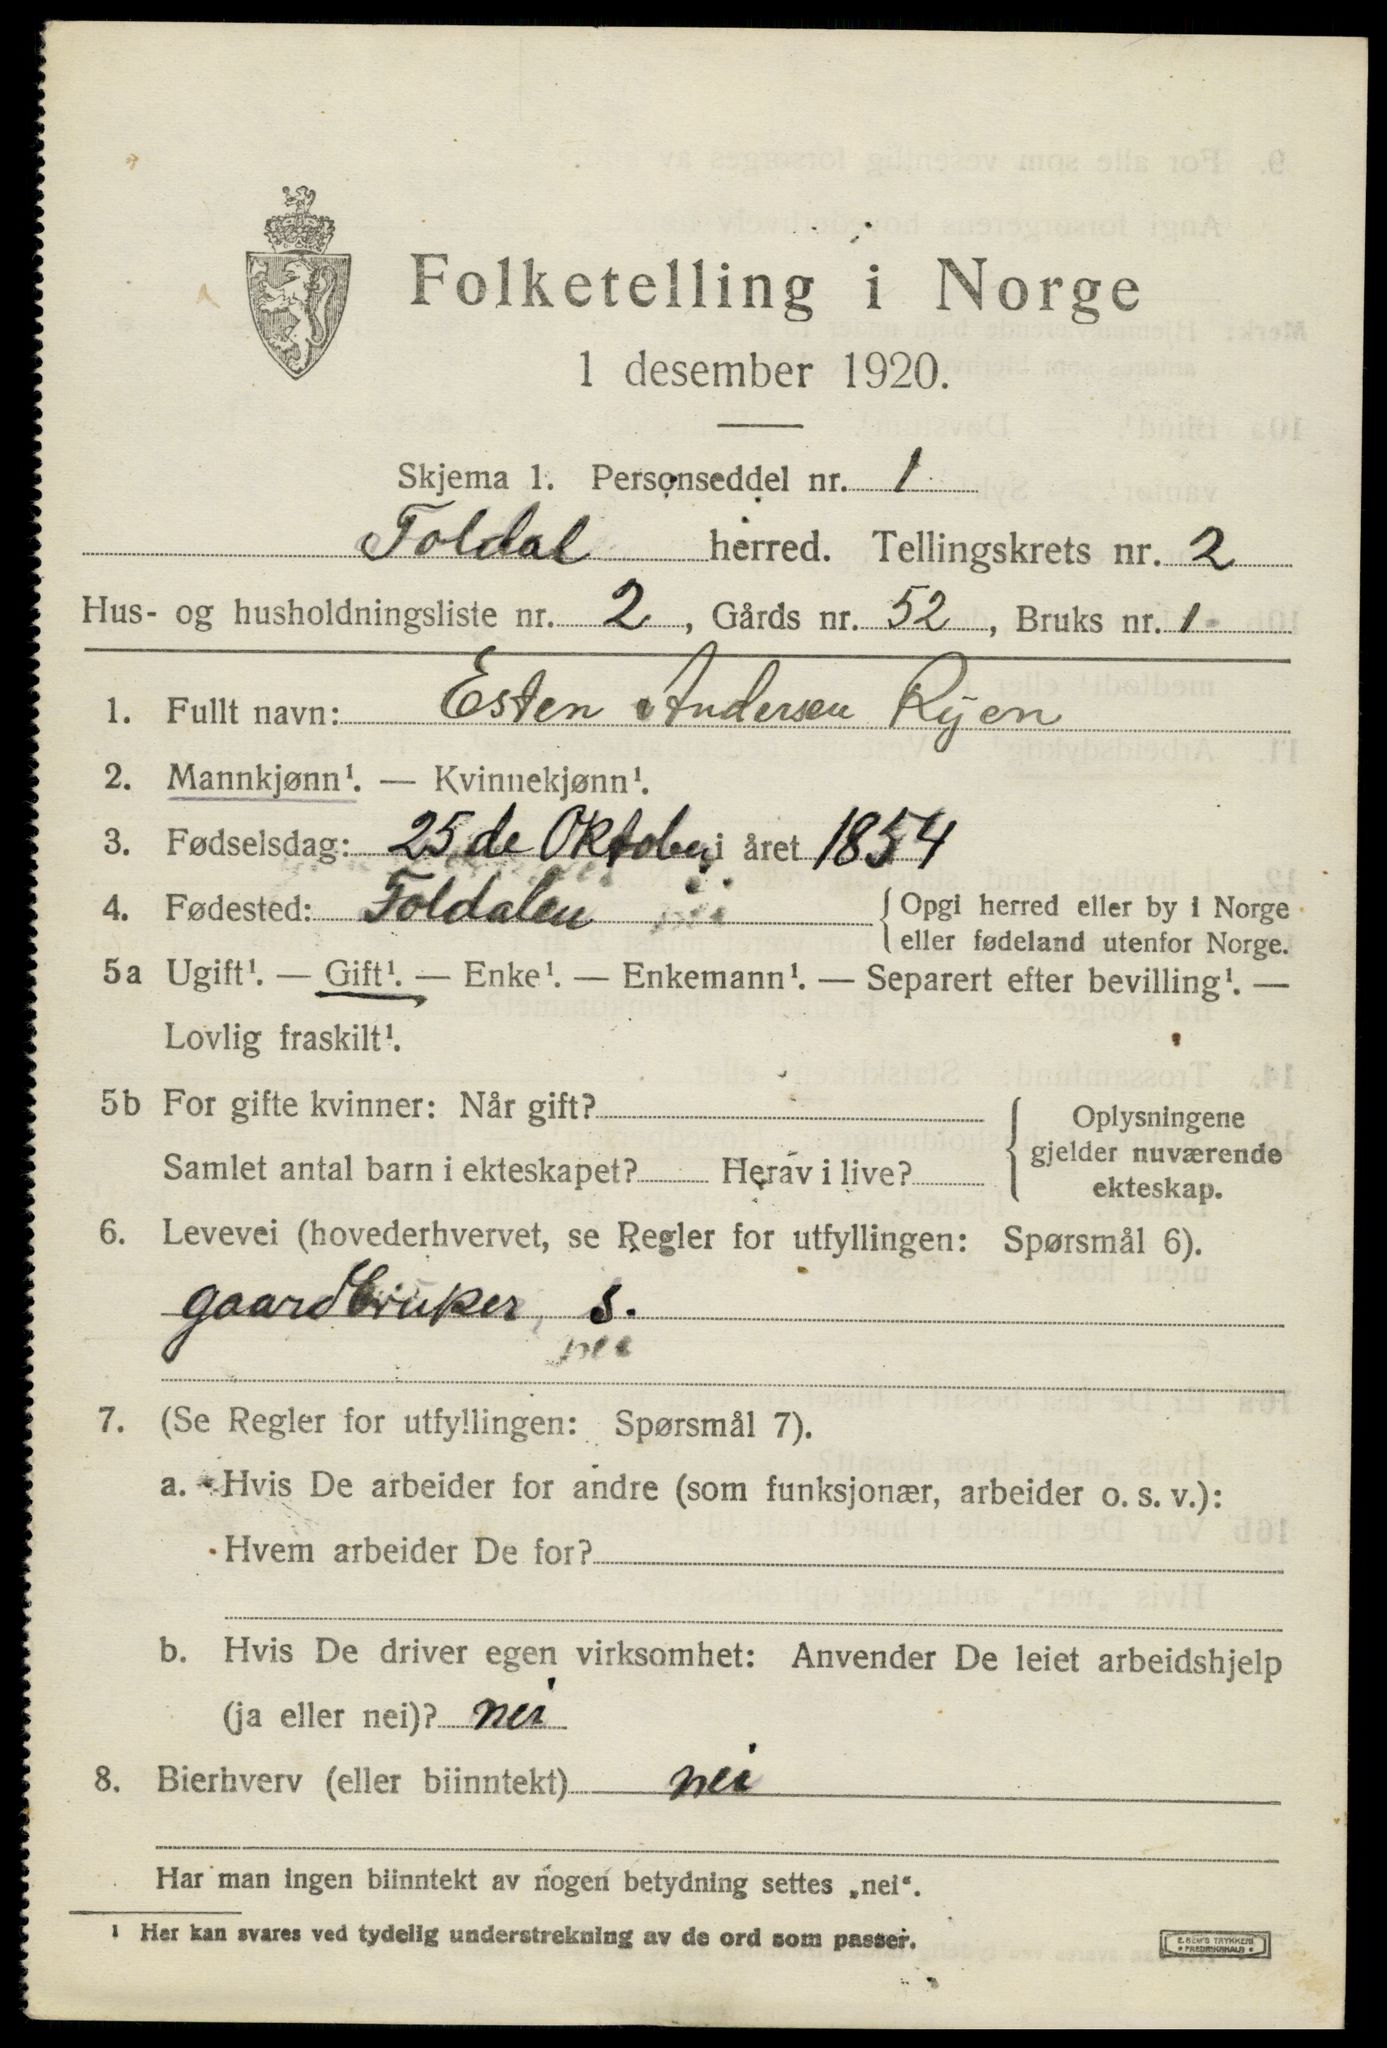 Folketelling i Norge
1 desember 1920.
Skjema 1. Personseddel nr. 1
Foldal herred. Tellingskrets nr. 2
Hus- og husholdningsliste nr. 2, Gårds nr. 52, Bruks nr. 1
1. Fullt navn: Esten Andersen Ryen
2. Mannkjønn¹. — Kvinnekjønn¹.
3. Fødselsdag: 25de Oktober i året 1854
4. Fødested: Foldalen { Opgi herred eller by i Norge
eller fødeland utenfor Norge.
5a Ugift¹. — Gift¹. — Enke¹. — Enkemann¹. — Separert efter bevilling¹. —
Lovlig fraskilt¹.
5b For gifte kvinner: Når gift?
Samlet antal barn i ekteskapet? Herav i live?
{ Oplysningene
gjelder nuværende
ekteskap.
6. Levevei (hovederhvervet, se Regler for utfyllingen: Spørsmål 6).
gaardbruker, s.
nei
7. (Se Regler for utfyllingen: Spørsmål 7).
a. Hvis De arbeider for andre (som funksjonær, arbeider o. s. v.):
Hvem arbeider De for?
b. Hvis De driver egen virksomhet: Anvender De leiet arbeidshjelp
(ja eller nei)? nei
8. Bierhverv (eller biinntekt) nei
Har man ingen biinntekt av nogen betydning settes „nei“.
¹ Her kan svares ved tydelig understrekning av de ord som passer.
E. SEM'S TRYKKERI
FREDRIKSHALD